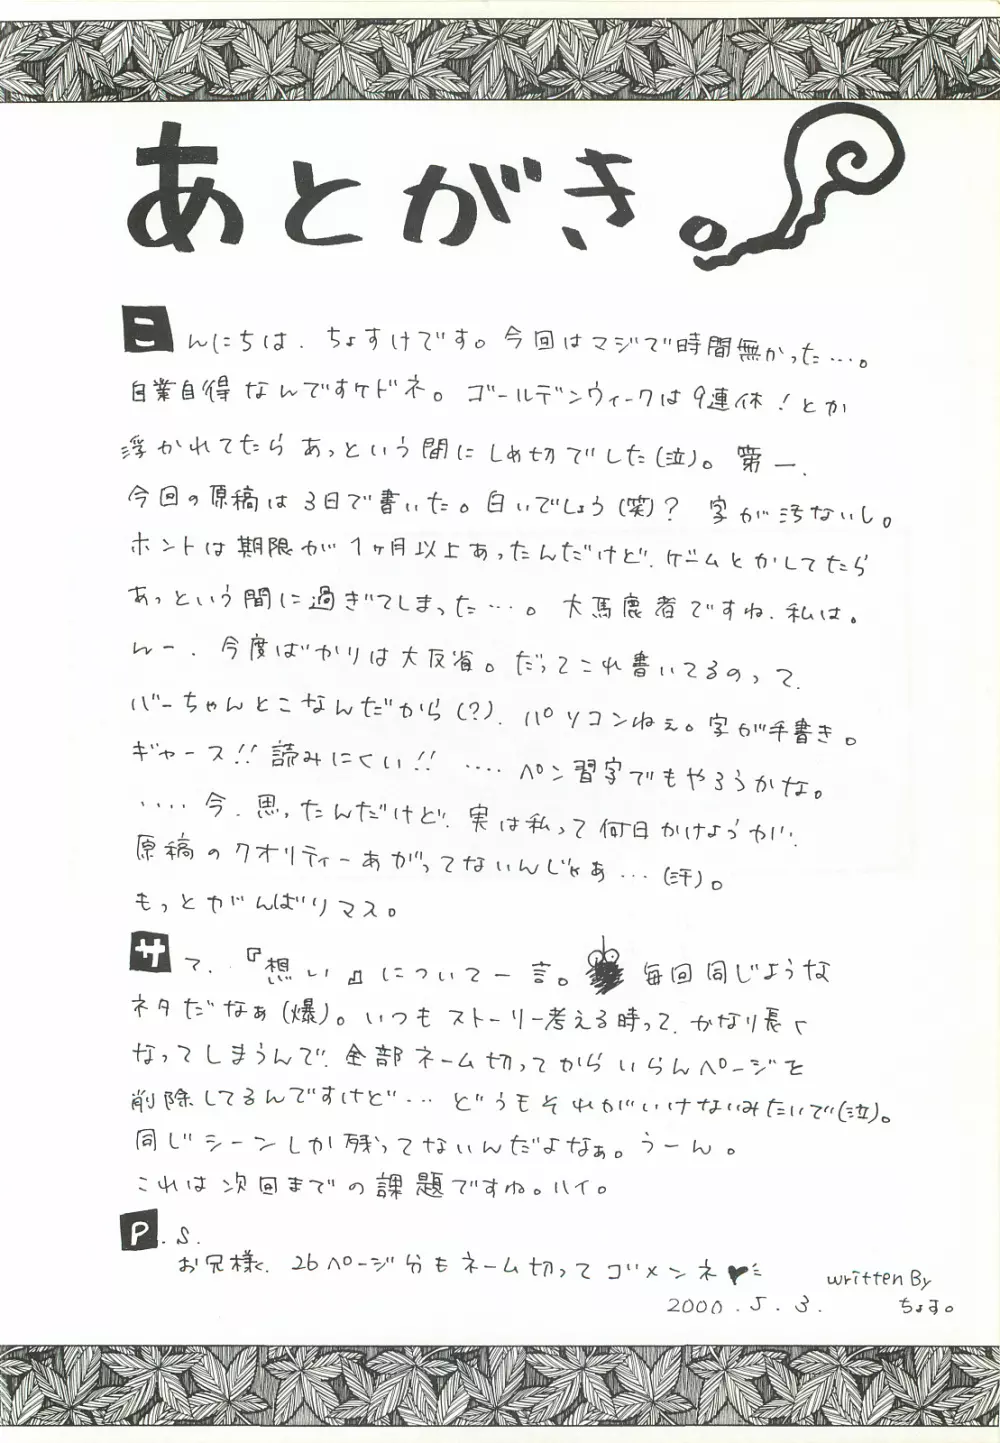 あとがき。
こんにちは、ちょすけです。今回はマジで時間無かった…。
自業自得なんですケドネ。ゴールデンウィークは9連休！とか
浮かれてたらあっという間にしめ切でした(泣)。第一、
今回の原稿は3日で書いた。白いでしょう(笑)？字が汚ないし。
ホントは期限が1ヶ月以上あったんだけど、ゲームとかしてたら
あっという間に過ぎてしまった…。大馬鹿者ですね、私は。
んー、今度ばかりは大反省。だってこれ書いてるのって、
バーちゃんとこなんだから(?)、パソコンねぇ。字が手書き。
ギャース!!読みにくい!!‥‥ペン習字でもやろうかな。
‥‥今、思ったんだけど、実は私って何日かけようが、
原稿のクオリティーあがってないんじゃあ…(汗)。
もっとがんばりマス。
サて、『想い』について一言。毎回同じような
ネタだなぁ(爆)。いつもストーリー考える時って、かなり長く
なってしまうんで、全部ネーム切ってからいらんページを
削除してるんですけど…どうもそれがいけないみたいで(泣)。
同じシーンしか残ってないんだよなぁ。うーん。
これは次回までの課題ですね。ハイ。
P.S.
お兄様、26ページ分もネーム切ってゴメンネ♥
written By
2000.5.3. ちょす。